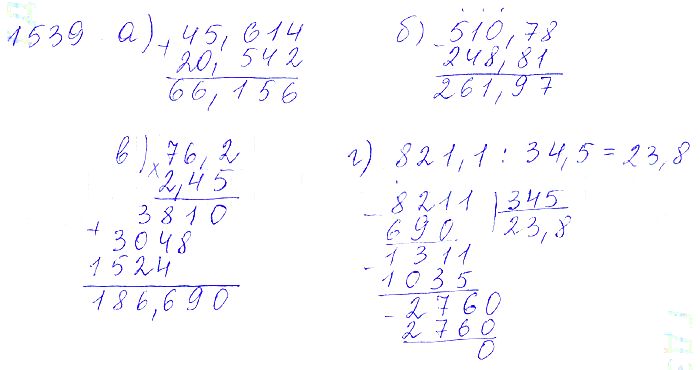 1539 а) + 45,614
20,542
66,156
б) - 510,78
248,81
261,97
в) x 76,2
2,45
3810
+ 3048
1524
186,690
г) 821,1 : 34,5 = 23,8
- 8211 | 345
690 23,8
- 1311
1035
- 2760
2760
0